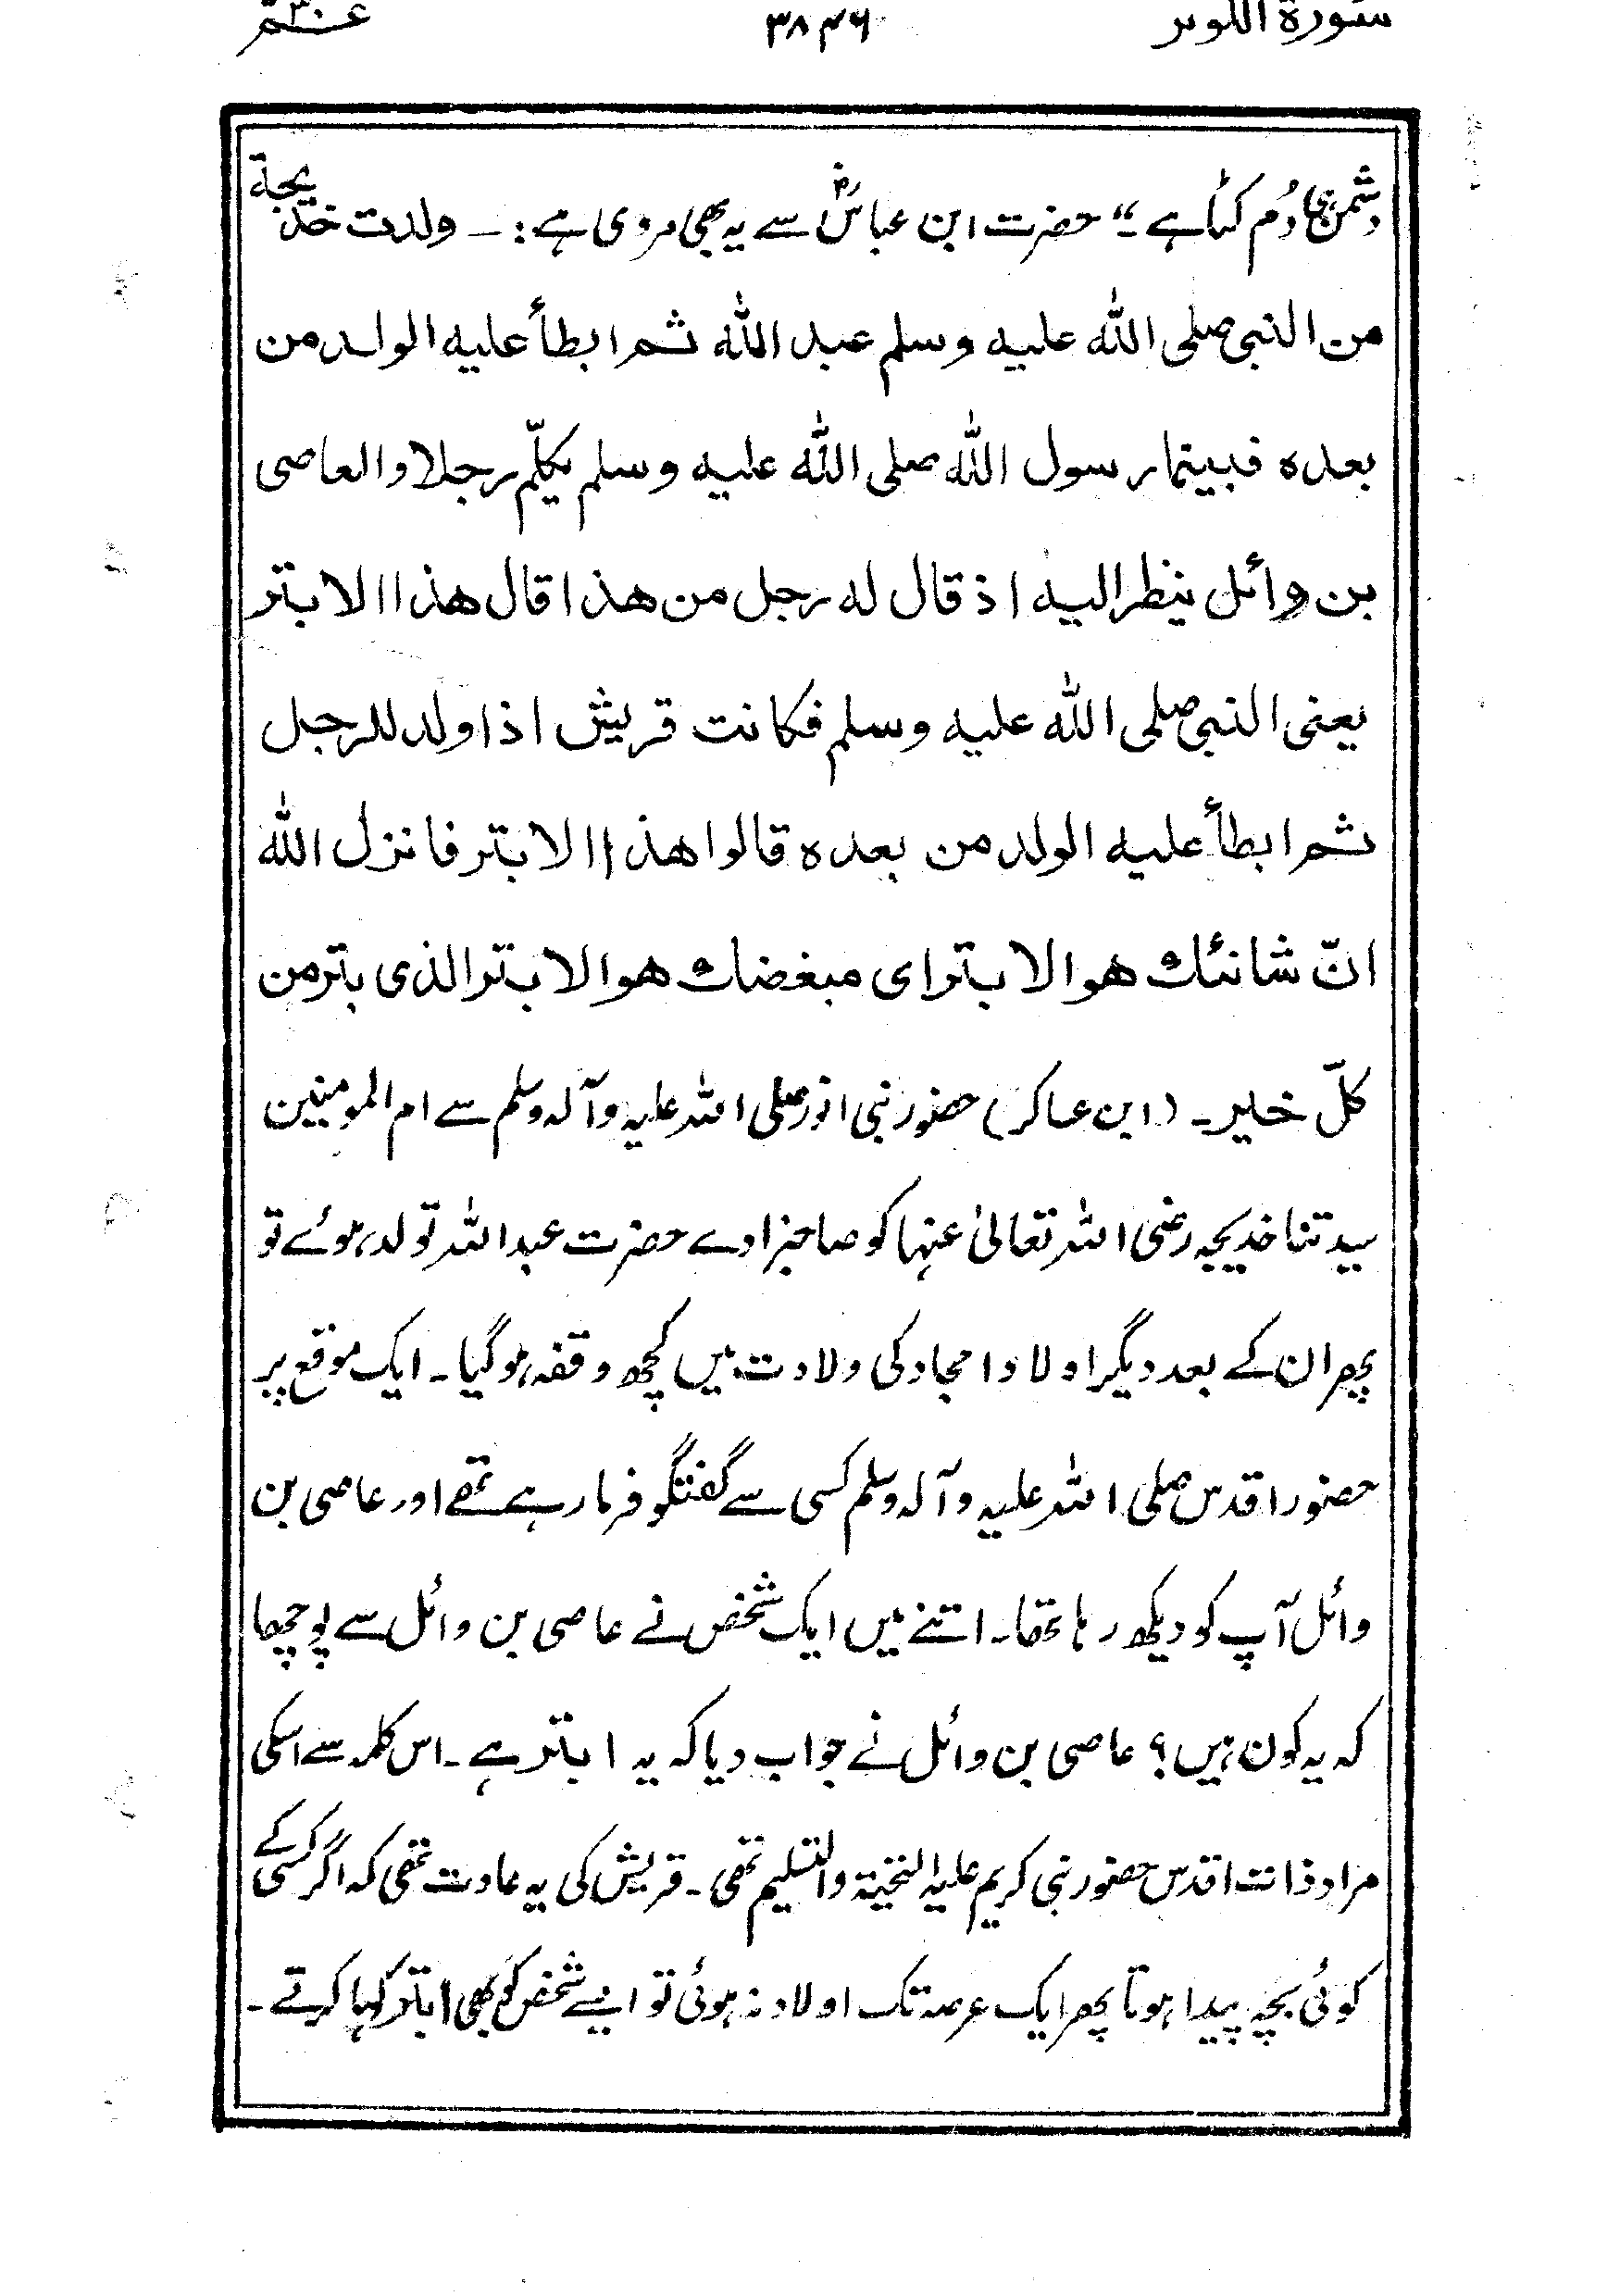 سورة الکوثر ۳۸۴۶ عـــم ۳۰
دشمن ہی دُم کٹا ہے ۔“ حضرت ابن عباسؓ سے یہ بھی مروی ہے :۔ ولدت خدیجة
من النبی صلی الله علیه وسلم عبد الله ثم ابطأ علیه الولد من
بعده فبینما رسول الله صلی الله علیه وسلم یکلّم رجلا والعاصی
بن وائل ینظر الیه اذ قال له رجل من هذا قال هذا الابتر
یعنی النبی صلی الله علیه وسلم فکانت قریش اذا ولد للرجل
ثم ابطأ علیه الولد من بعده قالوا هذا الابتر فانزل الله
انّ شانئك هو الابتر ای مبغضك هو الابتر الذی بتر من
کلّ خیر ۔ (ابن عساکر) حضور نبی انور صلی اللہ علیہ وآلہ وسلم سے ام المومنین
سیدتنا خدیجہ رضی اللہ تعالیٰ عنہا کو صاحبزادے حضرت عبداللہ تولد ہوئے تو
پھر ان کے بعد دیگر اولاد امجاد کی ولادت میں کچھ وقفہ ہوگیا ۔ ایک موقع پر
حضور اقدس صلی اللہ علیہ وآلہ وسلم کسی سے گفتگو فرما رہے تھے اور عاصی بن
وائل آپ کو دیکھ رہا تھا ۔ اتنے میں ایک شخص نے عاصی بن وائل سے پوچھا
کہ یہ کون ہیں ؟ عاصی بن وائل نے جواب دیا کہ یہ ابتر ہے ۔ اس کلمہ سے اسکی
مراد ذات اقدس حضور نبی کریم علیہ التحیۃ والتسلیم تھی ۔ قریش کی یہ عادت تھی کہ اگر کسی کے
کوئی بچہ پیدا ہوتا پھر ایک عرصہ تک اولاد نہ ہوئی تو ایسے شخص کو بھی ابتر کہا کرتے ۔